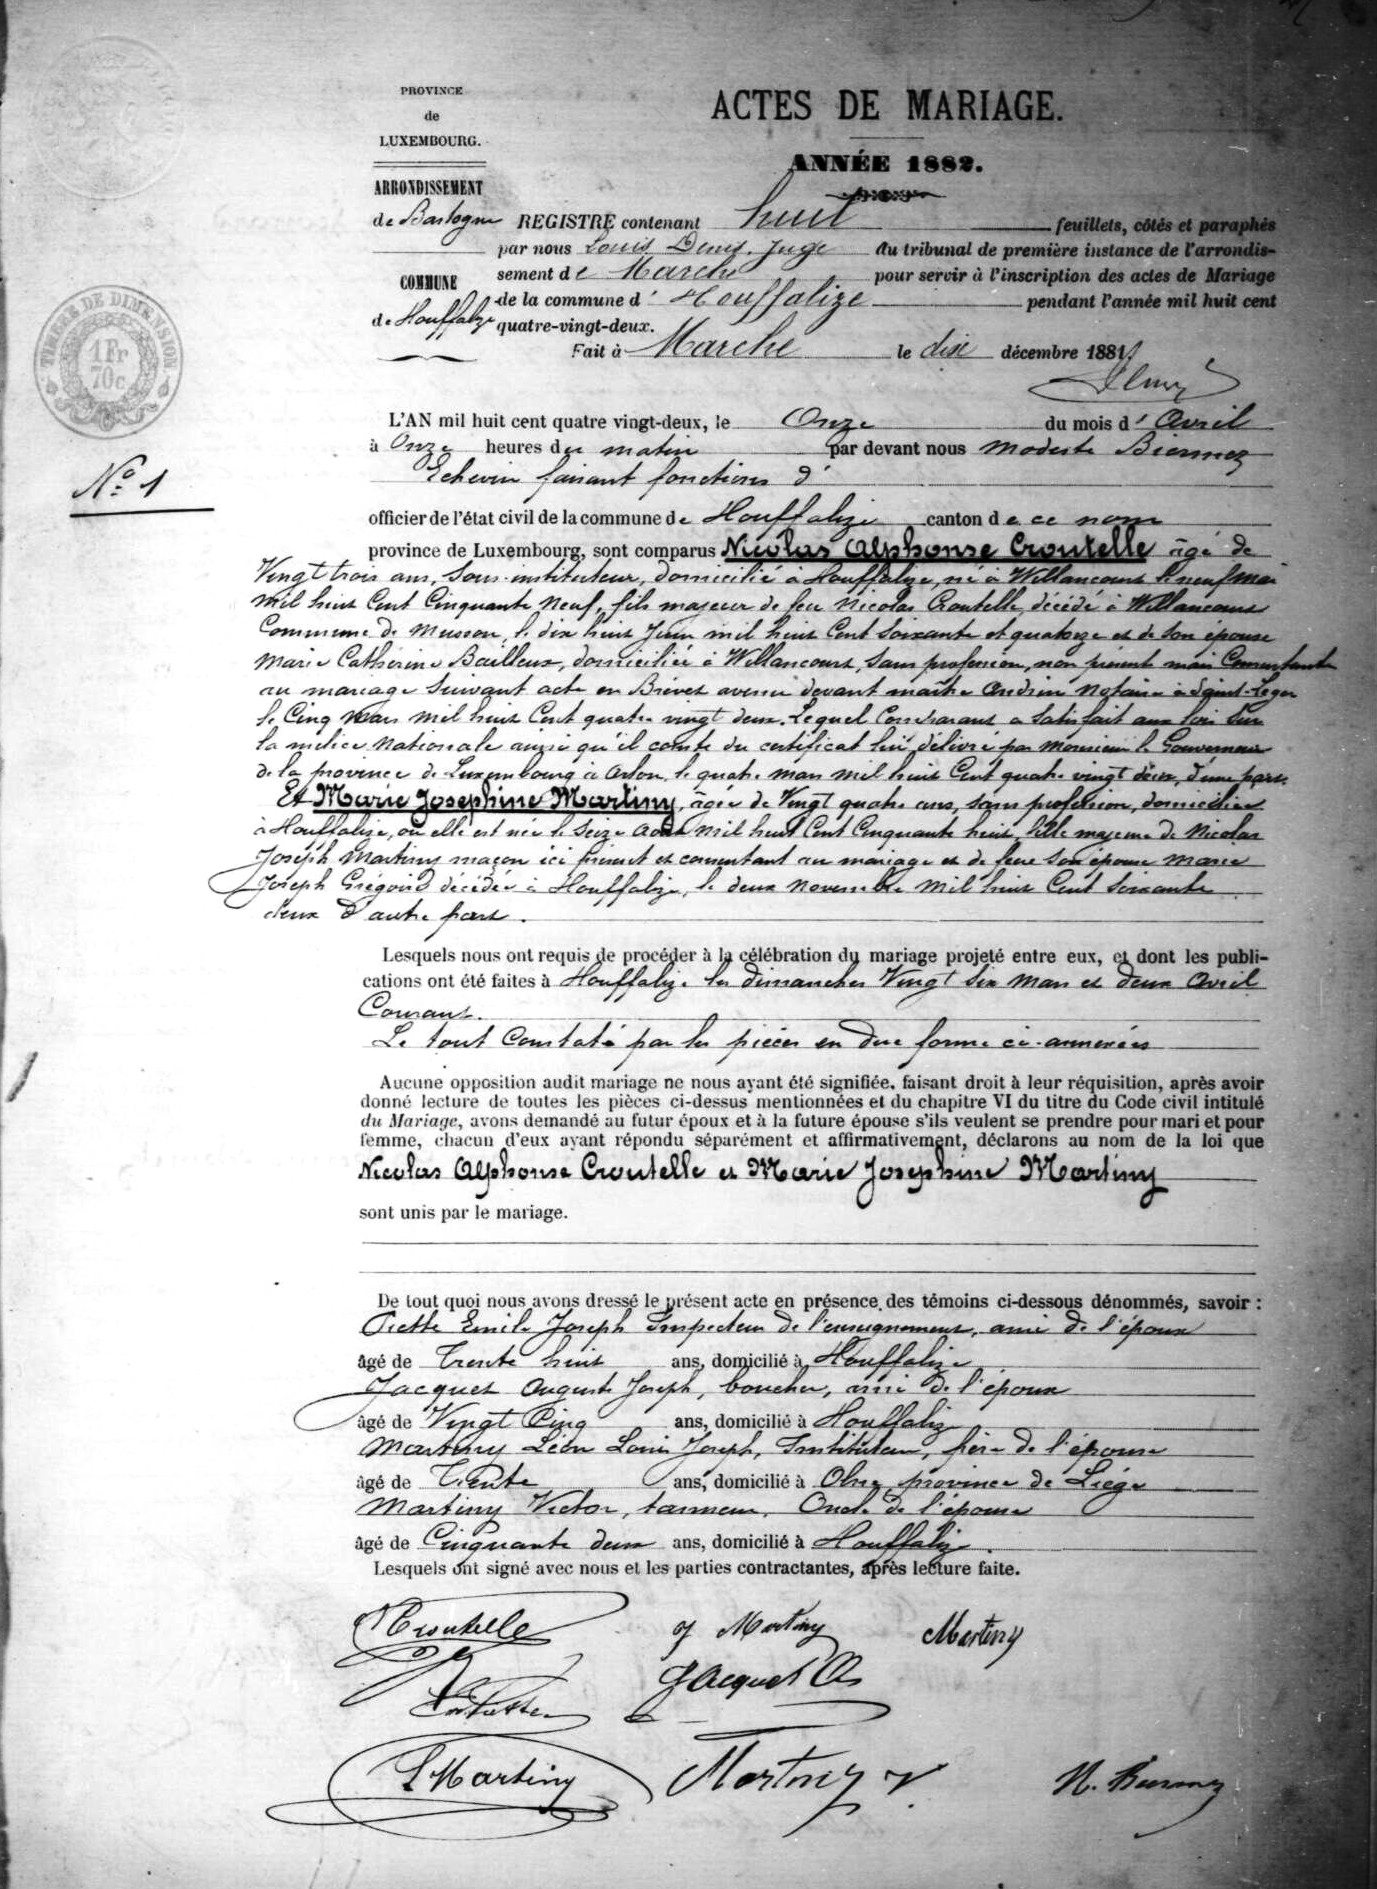 PROVINCE
de
LUXEMBOURG.
ARRONDISSEMENT
de Bastogne
COMMUNE
de Houffalize
TIMBRE DE DIMENSION
1 Fr
70 c
No. 1
ACTES DE MARIAGE.
ANNÉE 1882.
REGISTRE contenant huit feuillets, côtés et paraphés
par nous Louis Denis, Juge du tribunal de première instance de l'arrondis-
sement de Marche pour servir à l'inscription des actes de Mariage
de la commune d' Houffalize pendant l'année mil huit cent
quatre-vingt-deux.
Fait à Marche le dix décembre 1881
L'AN mil huit cent quatre vingt-deux, le Onze du mois d' Avril
à Onze heures du matin par devant nous Modeste
Echevin faisant fonctions d'
officier de l'état civil de la commune de Houffalize canton de ce nom
province de Luxembourg, sont comparus Nicolas Alphonse Croutelle âgé de
Vingt trois ans, Sous-instituteur, domicilié à Houffalize, né à Willancourt le neuf Mai
mil huit Cent Cinquante Neuf, fils majeur de feu Nicolas Croutelle, décédé à Willancourt
Commune de Musson, le dix huit Juin mil huit Cent Soixante et quatorze et de son épouse
Marie Catherine Bailleux, domiciliée à Willancourt, Sans profession, non présente mais Consentante
au mariage suivant acte en Brévet avenu devant maître notaire à Saint-Léger
le Cinq Mars mil huit Cent quatre vingt deux. Lequel Comparant a satisfait aux lois sur
la milice Nationale ainsi qu'il conste du certificat lui délivré par Monsieur le Gouverneur
de la province de Luxembourg à Arlon, le quatre mars mil huit Cent quatre vingt deux, d'une part.
Et Marie Josephine Martiny, âgée de Vingt quatre ans, sans profession, domiciliée
à Houffalize, où elle est née le Seize Août mil huit Cent Cinquante huit, fille majeure de Nicolas
Joseph Martiny maçon ici présent et consentant au mariage et de feue son épouse Marie
Joseph Grégoire décédée à Houffalize, le deux Novembre mil huit Cent Soixante
deux d'autre part.
Lesquels nous ont requis de procéder à la célébration du mariage projeté entre eux, et dont les publi-
cations ont été faites à Houffalize les dimanches Vingt Six Mars et deux Avril
Courant.
Le tout Constaté par les pièces en due forme ci-annexées
Aucune opposition audit mariage ne nous ayant été signifiée, faisant droit à leur réquisition, après avoir
donné lecture de toutes les pièces ci-dessus mentionnées et du chapitre VI du titre du Code civil intitulé
du Mariage, avons demandé au futur époux et à la future épouse s'ils veulent se prendre pour mari et pour
femme, chacun d'eux ayant répondu séparément et affirmativement, déclarons au nom de la loi que
Nicolas Alphonse Croutelle et Marie Josephine Martiny
sont unis par le mariage.
De tout quoi nous avons dressé le présent acte en présence des témoins ci-dessous dénommés, savoir :
Emile Joseph Inspecteur de l'enseignement, ami de l'époux
âgé de Trente huit ans, domicilié à Houffalize
Jacquet Auguste Joseph, boucher, ami de l'époux
âgé de Vingt Cinq ans, domicilié à Houffalize
Martiny Léon Louis Joseph, Instituteur, frère de l'épouse
âgé de Trente ans, domicilié à Olne, province de Liége
Martiny Victor, tanneur, Oncle de l'épouse
âgé de Cinquante deux ans, domicilié à Houffalize.
Lesquels ont signé avec nous et les parties contractantes, après lecture faite.
Croutelle J Martiny Martiny
Jacquet
L Martiny Martiny V.